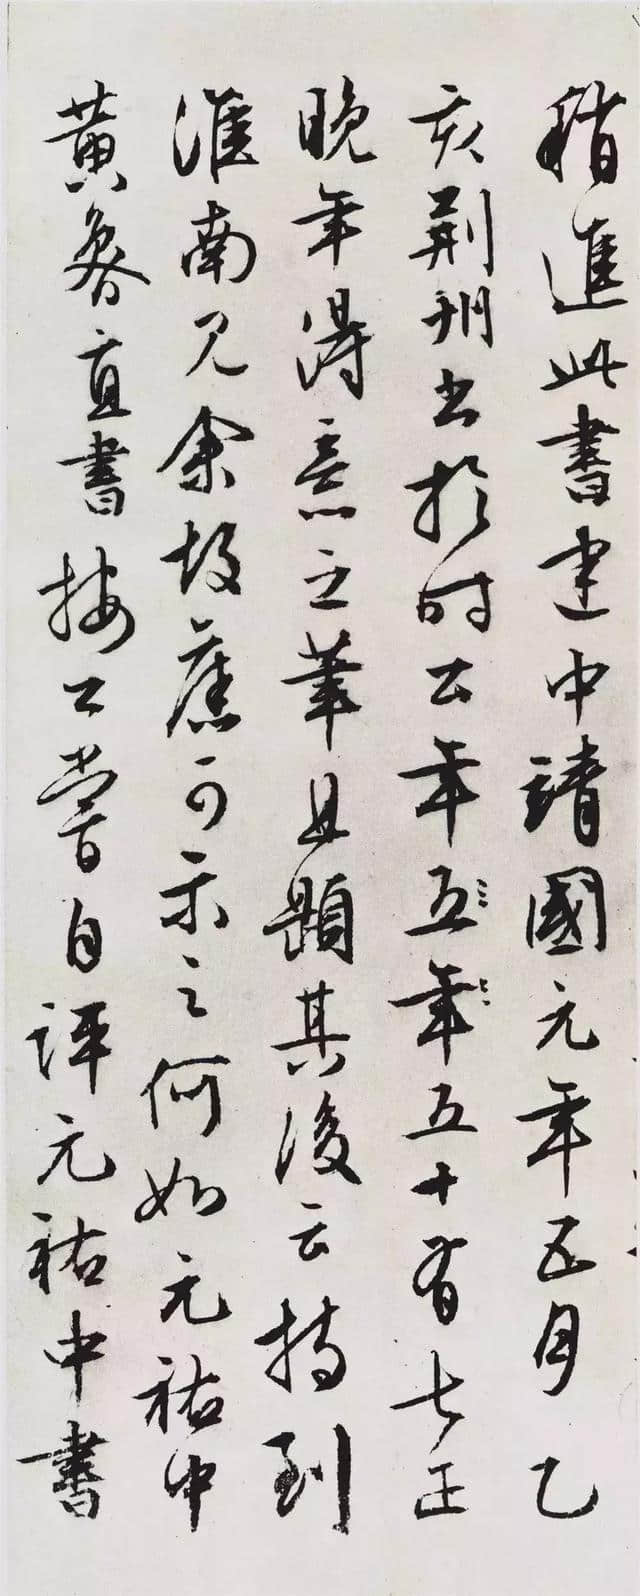 稍進此書建中靖國元年五月乙
亥荊州書於時公年五年五十有七正
晚年得意之筆且題其後云持到
淮南見余故舊可示之何如元祐中
黃魯直書按公嘗自評元祐中書